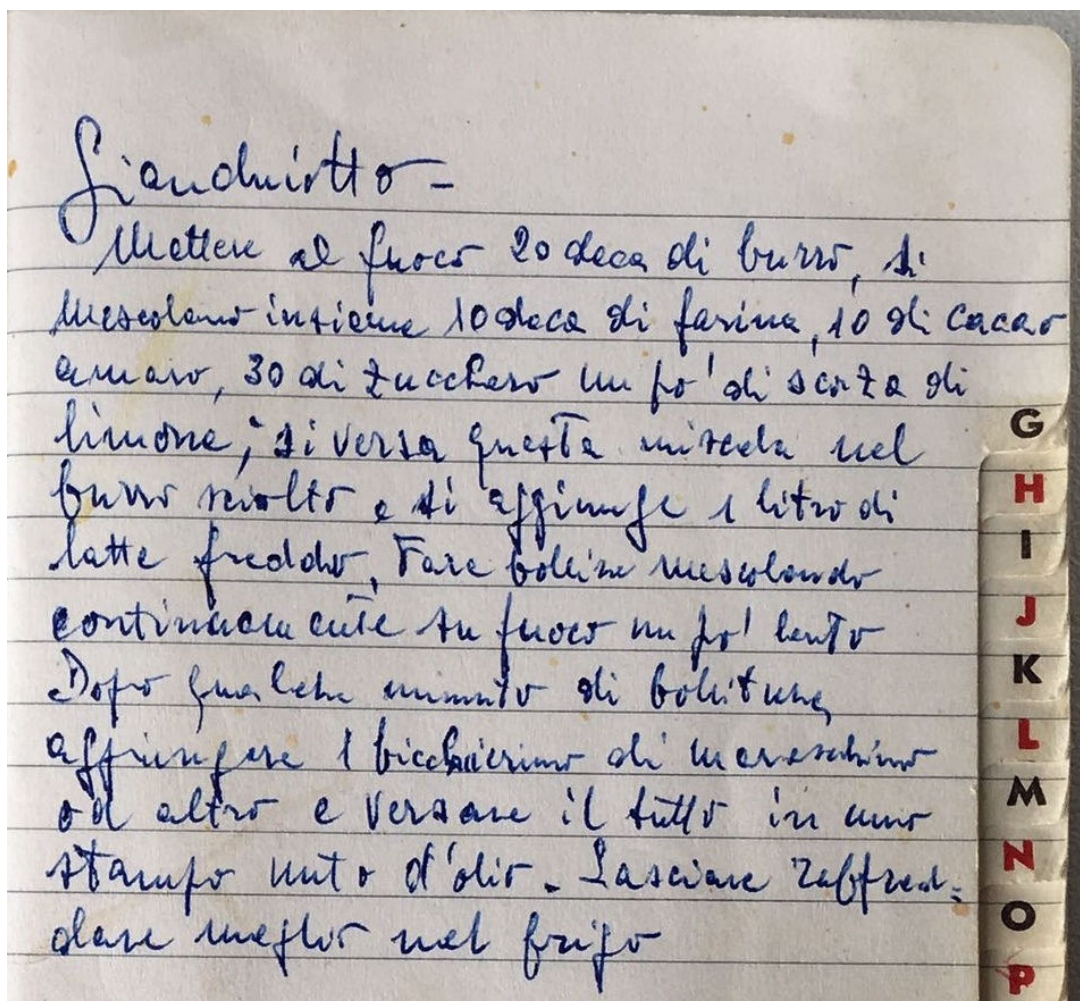 Gianduiotto -
Mettere al fuoco 20 deca di burro, si
mescolano insieme 10 deca di farina, 10 di cacao
amaro, 30 di zucchero un po' di scorza di
limone, si versa questa miscela nel
burro sciolto e si aggiunge 1 litro di
latte freddo, Fare bollire mescolando
continuamente su fuoco un po' lento
Dopo qualche minuto di bollitura,
aggiungere 1 bicchierino di maraschino
od altro e versare il tutto in uno
stampo unto d'olio - Lasciare raffred=
dare meglio nel frigo
G
H
I
J
K
L
M
N
O
P